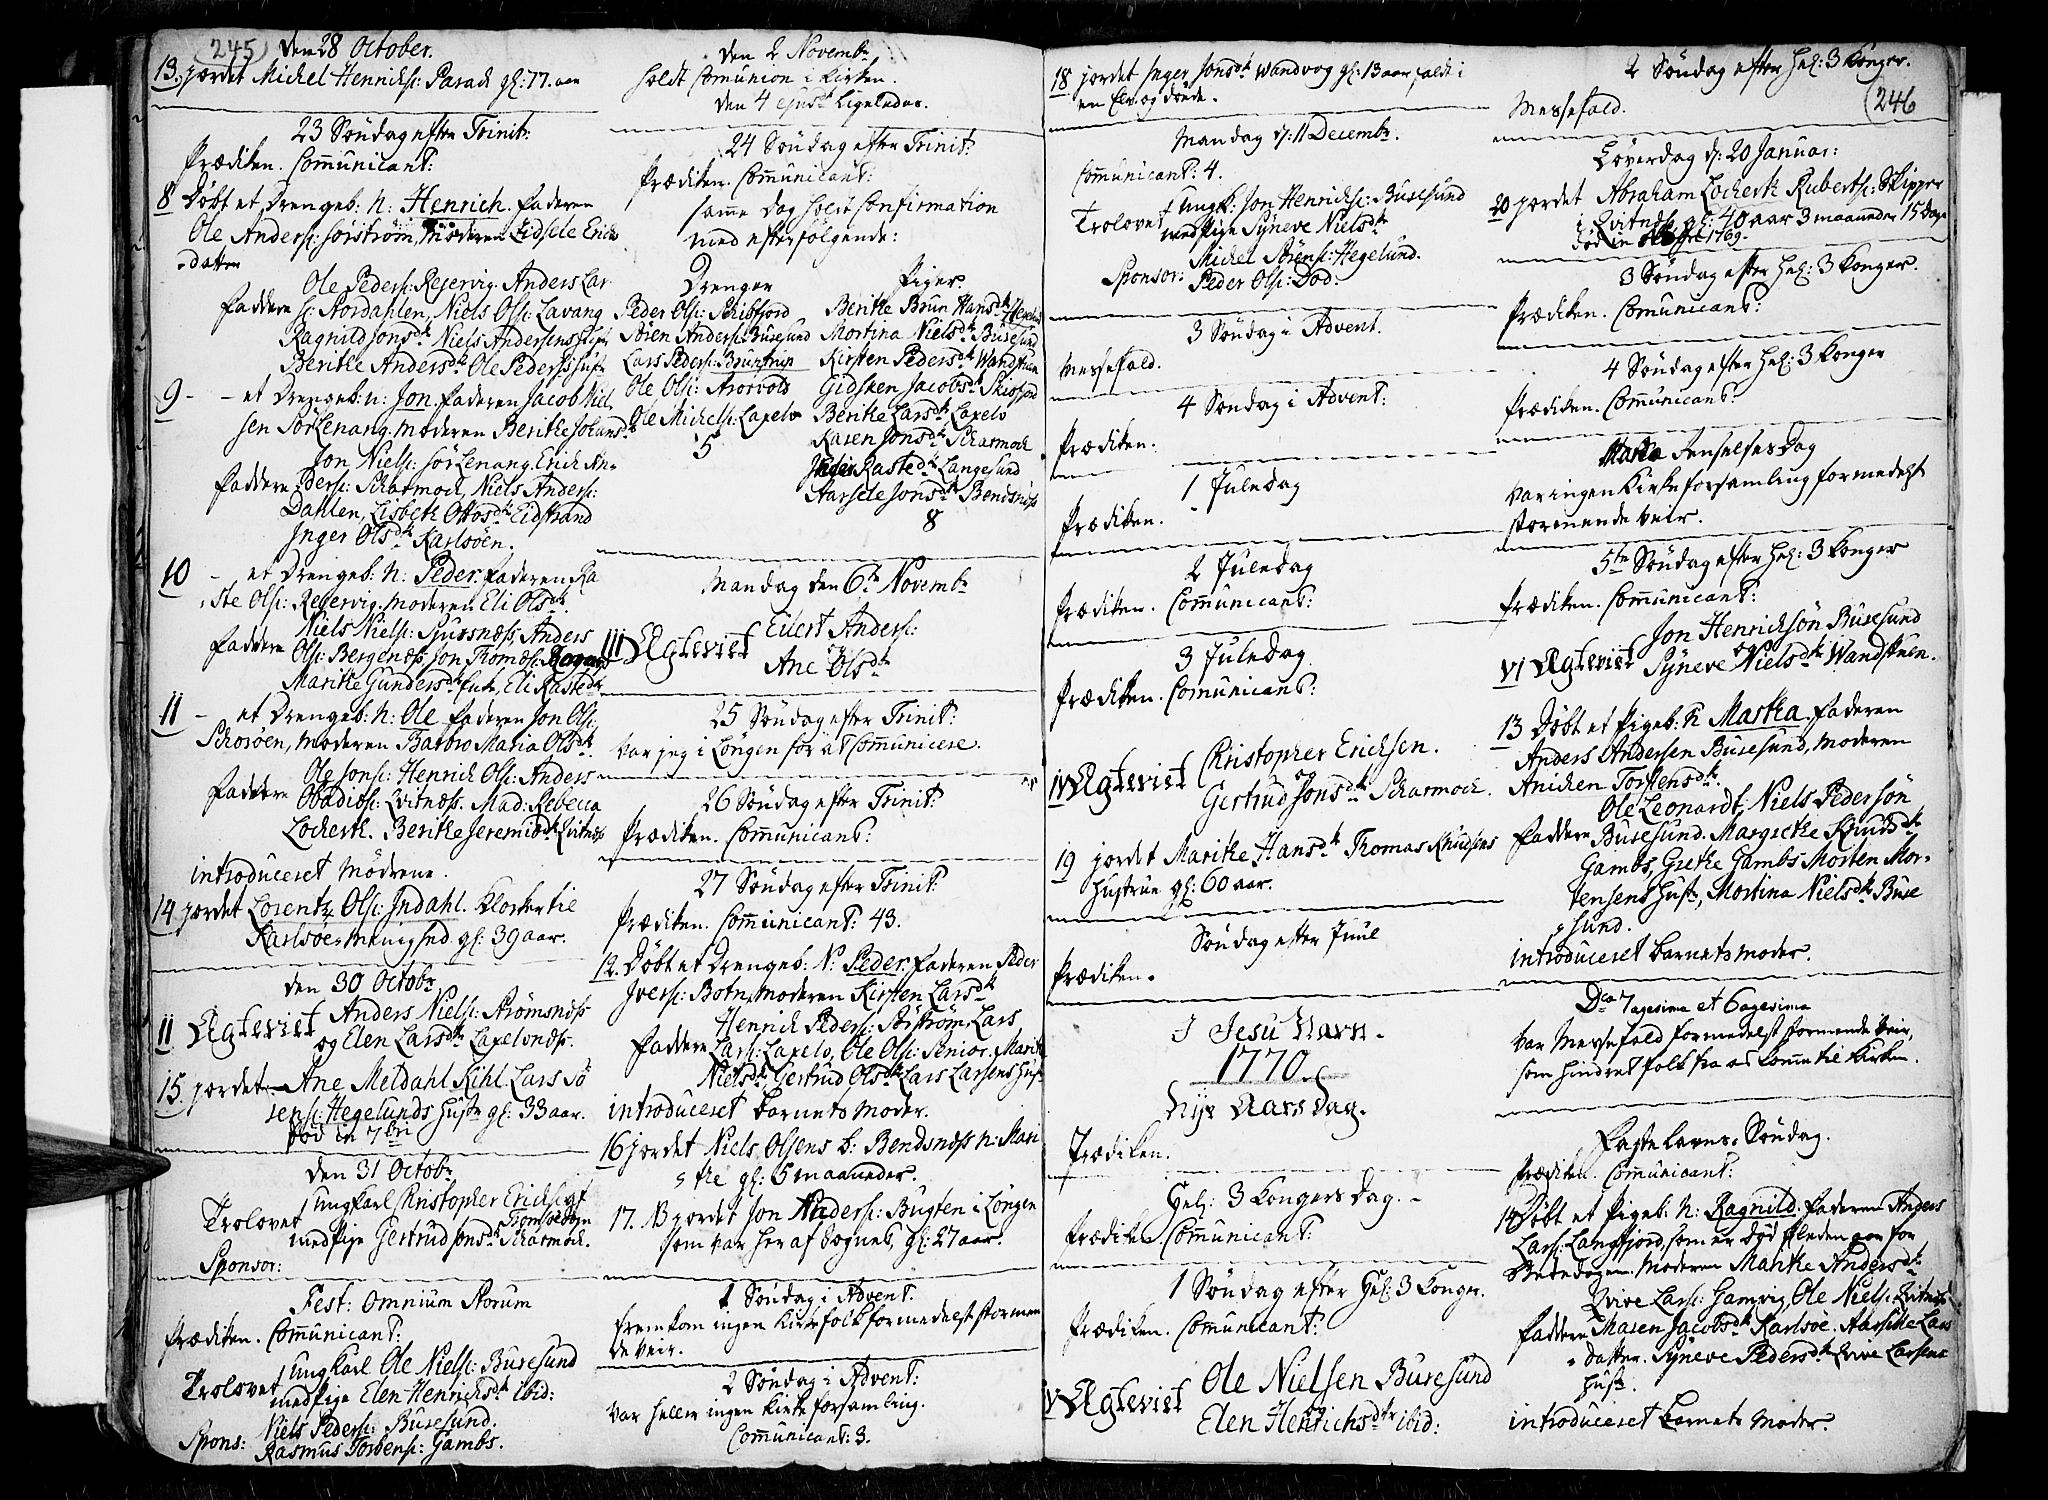 245
den 28 October.
13. jordet Michel Henrichs: Parack gl: 77. aar
23 Söndag efter Trinit:
Prædiken. Com̄unicant:
8 Döbt et Drengeb: N: Henrich. faderen
Ole Anders: Sörström, Moderen Zidsele Erichs
datter
Ole Peders: Reiervig. Anders Lar
faddere s: Nordahlen, Niels Ols: Lavang
Ragnild Jonsdtr Niels Andersens
Berithe Andersdtr Ole Peders Hustr
9 - - et Drengeb: n: Jon. faderen Jacob Niel
sen Sörlenang. Moderen Berithe Johansdtr
Jon Niels: Sörlenang. Erich An-
faddere ders: Scharmoch, Niels Anders:
Dahlen, Lisbeth Ottosdtr Eidstrand
Inger Olsdtr Karlsöen.
10 - et Drengeb: N: Peder. faderen Ra
ste Ols: Reiervig. Moderen Eli Olsdtr.
Niels Niels: Sjursnæss, Anders
faddere Ols: Bergenæss, Jon Thomæs:
Marithe Gundersdtr Eli Rastedtr
11 - et Drengeb: N: Ole faderen Jon Ols:
Schoröen, Moderen Barbro Maria Olsdtr
Ole Jons: Henrich Ols: Anders
faddere Obadiæs: Qvitnæss. Mad: Rebecca
Lockertz. Berithe Jeremiædtr Qvitnæss
introduceret Mödrene.
14. jordet Lorentz Ols: Indahl. Klocker til
Karlsöe Menighed gl: 39 aar.
den 30 Octobr
II Ægteviet Anders Niels: Strömsnæss
og Elen Larsdtr Laxelvnæss.
15. jordet Ane Meldahl Kihl. Lars Sö
rens: Hegelunds Hustr gl: 33 aar.
död in 7bri
den 31 Octobr
Trolovet Ungkarl Christopher Erichs: af
Tromsöe Sogn
med Pige Gertrud Jonsdtr Scharmoch.
Sponsor:
Fest: Omnium Storum
Prædiken. Com̄unicant:
Trolovet Ungkarl Ole Niels: Buresund
med Pige Elen Henrichsdtr ibid:
Spons: Niels Peders: Buresund.
Rasmus Torbens: Gambs.
den 2 Novembr
holdt Comunion i Kirken.
den 4 ejusd. ligeledes.
24 Söndag efter Trinit:
Prædiken. Com̄unicant:
samme Dag holdt Confirmation
med efterfölgende:
Drenger
Peder Ols: Schibfjord
Sören Anders: Buresund
Lars Peders: Bruntrup
Ole Ols:
Ole Michels: Laxelv
5
Piger
Berithe Brun Hansdtr Hegelund
Mortina Nielsdtr Buresund
Kirsten Pedersdtr Wandstuen
Gidsken Jacobsdtr
Berithe Larsdtr Laxelv
Karen Jonsdtr Scharmoch
Rastedtr Langesund
Aarsele Jonsdtr Bendsnæss
8
Mandag den 6te Novembr
III Ægteviet Evert Anders:
og
Ane Olsdtr
25 Söndag efter Trinit:
var jeg i Löngen for at Com̄unicere.
26 Söndag efter Trinit:
Prædiken. Com̄unicant:
27 Söndag efter Trinit:
Prædiken. Com̄unicant: 43.
12. Döbt et Drengeb: N: Peder. faderen Peder
Ivers: Botn, Moderen Kirsten Larsdtr
Henrich Peders: Sörström, Lars
faddere Lars: Laxelv, Ole Ols: Senior. Marithe
Nielsdtr, Gertrud Olsdtr Lars Larsens Hustr
introduceret barnets Moder.
16 jordet Niels Olsens b: Bendsnæss n: Mari
the gl: 5 maaneder.
17. NB jordet Jon Anders: Bugten i Löngen
som var her af Sognet, gl: 27 aar.
1 Söndag i Advent:
fremkom ingen Kirkefolk formedelst stormen
de Veir.
2 Söndag i Advent:
var heller ingen Kirke forsamling.
Com̄unicant: 3.
18 jordet Inger Jonsdtr Wandvog gl: 13 aar, faldt i
en Elv og döde.
Mandag d: 11 Decembr.
Com̄unicant: 4.
Trolovet Ungk: Jon Henrichs: Buresund
med Pige Syneve Nielsdtr
Sponsor: Michel Sörens: Hegelund.
Peder Ols: Dod:
3 Söndag i Advent.
Messefald.
4 Söndag i Advent:
Prædiken.
1 Juledag
Prædiken.
2 Juledag
Prædiken. Com̄unicant:
3 Juledag
Prædiken. Comunicant:
IV Ægteviet Christopher Erichsen.
og
Gertrud Jonsdtr Scharmoch.
19 jordet Marithe Hansdtr Thomas Knudsens
Hustrue gl: 60 aar.
Söndag efter Juul
Prædiken.
I Jesu Navn.
1770.
Nyt Aars Dag.
Prædiken.
Hel: 3 Kongers Dag.
Prædiken Com̄unicant:
1 Söndag efter Hel: 3 Konger.
Prædiken. Com̄unicant:
V Ægteviet Ole Nielsen Buresund
og
Elen Henrichsdtr ibid:
2 Söndag efter Hel: 3 Konger.
246
Messefald.
Löverdag d: 20 Januar:
20 jordet Abraham Lockertz Ruberts: Skipper
i Qvitnæss gl: 40 aar 3 maaneder 15 Dage
död in 1769.
3 Söndag efter Hel: 3 Konger.
Prædiken. Com̄unicant:
4 Söndag efter Hel: 3 Konger
Prædiken. Com̄unicant:
Mariæ Renselses Dag
var ingen Kirkeforsamling formedelst
stormende Veir.
5te Söndag efter Hel: 3 Konger
Prædiken. Com̄unicant:
VI Ægteviet Jon Henrichsön Buresund
og
Syneve Nielsdtr Wandstuen.
13 Döbt et Pigeb: N Martha. faderen
Anders Andersen Buresund, Moderen
Anichen Torstensdtr
Ole Leonardt: Niels Pedersön
faddere Buresund. Margrethe Knudsdtr
Gambs, Grethe Gambs Morten Mor-
tensens Hustr, Mortina Nielsdtr Bure
sund.
introduceret barnets Moder.
Dca 7agesima et 6agesima
var Messefald formedelst stormende Veir,
som hindret folk fra at kom̄e til Kirken.
Fastelavns Söndag.
Prædiken. Com̄unicant:
14 Döbt et Pigeb: N: Ragnild. faderen Anders
Lars: Langfjord, som er död siden
Moderen Marithe Andersdtr
Qvive Lars: Gamvig, Ole Niels: Qvitnæss
faddere Maren Jacobsdtr Karlsöe. Aarsille Lars
datter. Syneve Pedersdtr Qvive Larsens
Hustr.
introduceret barnets Moder.